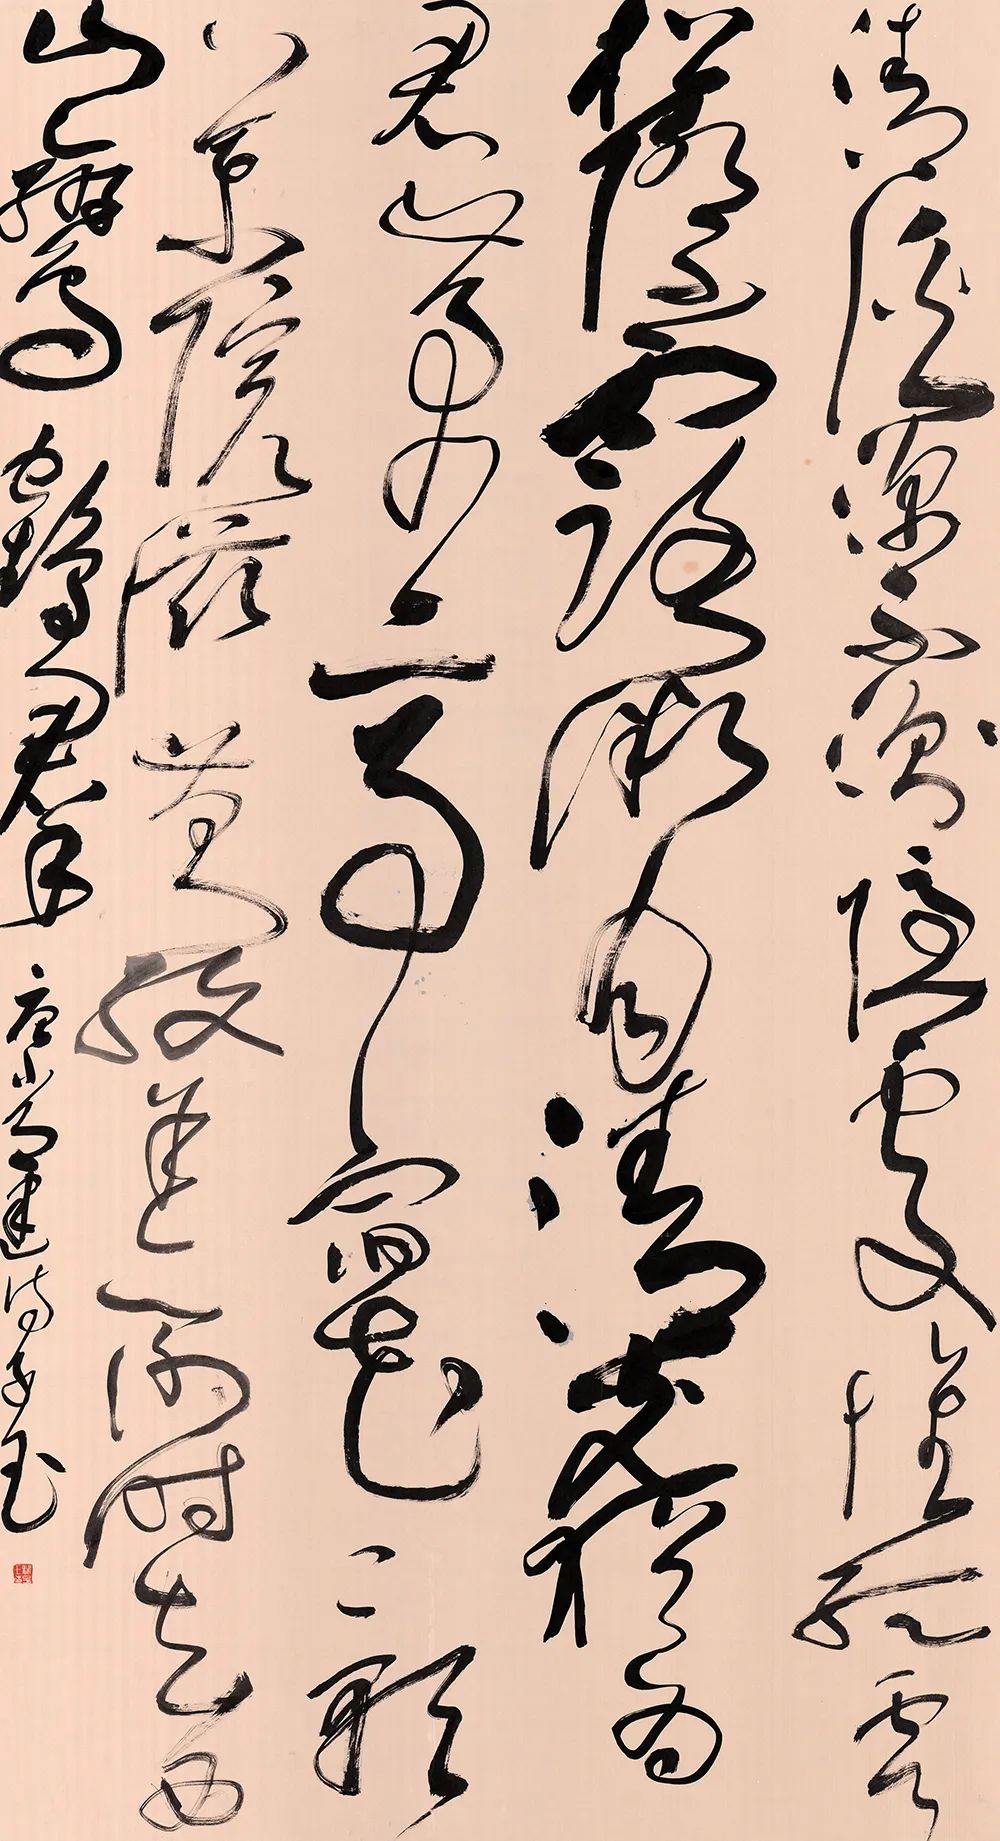 清溪深不測隱處惟孤雲
松際露微月清光猶為
君茅亭宿花影
藥院滋苔紋余亦謝時去西
山鸞鶴群 唐常建詩